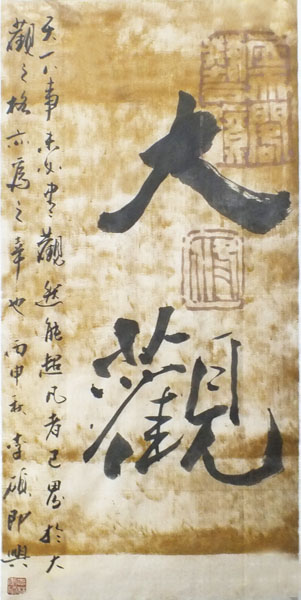 大觀
天下事未必盡觀然能超凡者已於大
觀之格亦為之幸也丙申秋碩即興